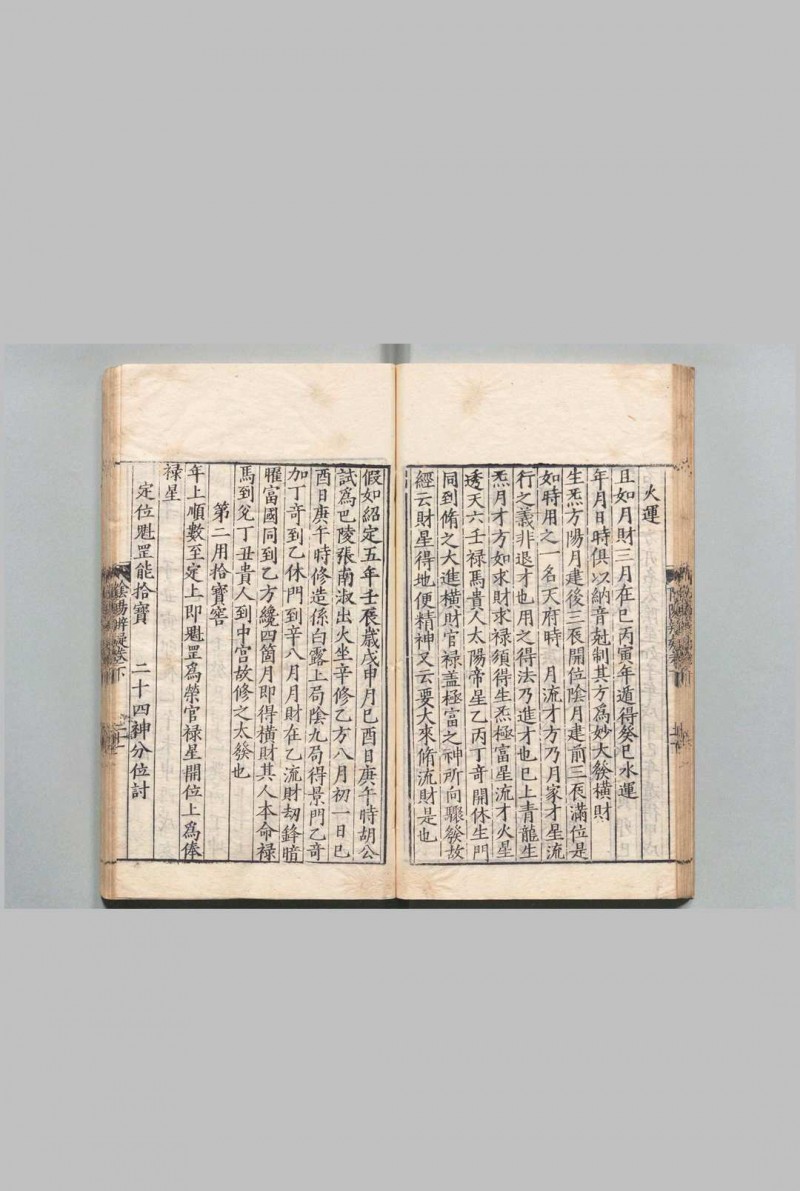 火運
且如月財三月在巳丙寅年遁得癸巳水運
年月日時俱以納音尅制其方為妙大發橫財
生炁方陽月建後三辰開位陰月建前三辰滿位是
如時用之一名天府時 月流才方乃月家才星流
行之義非退才也用之得法乃進才也巳上青龍生
炁月才方如求財求禄須得生炁極富星流才火星
透天六壬禄馬貴人太陽帝星乙丙丁奇開休生門
同到脩之大進橫財官禄盖極富之神所向驟發故
經云財星得地便精神又云要大來脩流財是也
假如紹定五年壬辰歲戊申月巳酉日庚午時胡公
試為巴陵張南淑出火坐辛修乙方八月初一日巳
酉日庚午時修造係白露上局陰九局得景門乙奇
加丁奇到乙休門到辛八月月財在乙流財刧鋒暗
曜富國同到乙方纔四箇月即得橫財其人本命禄
馬到兌丁丑貴人到中宮故修之太發也
第二用拾寶窖
年上順數至定上即魁罡為榮官禄星開位上為俸
禄星
定位魁罡能拾寶 二十四神分位討
陰陽辨疑卷下